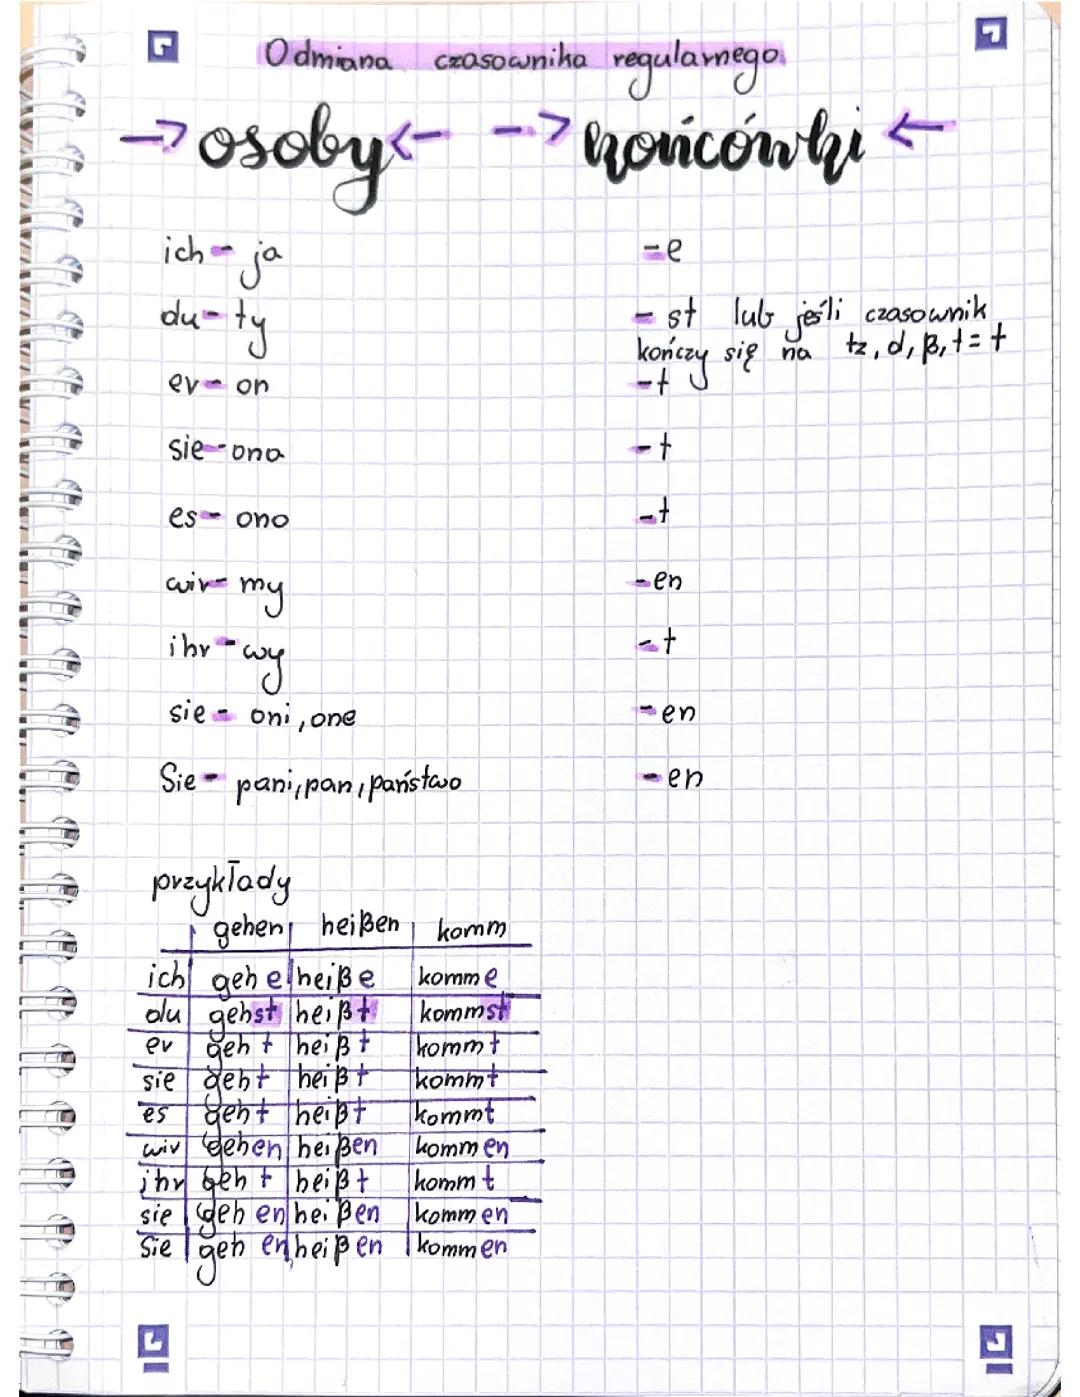 Odmiana czasownika regularnego
→ osoby ← → końcówki ←
ich - ja -e
du - ty - st lub jeśli czasownik
kończy się na tz, d, β, t = t
er - on -t
sie - ona -t
es - ono -t
wir - my -en
ihr - wy -t
sie - oni, one -en
Sie - pani, pan, państwo -en
przykłady
gehen heißen komm
ich gehe heiße komme
du gehst heißt kommst
er geht heißt kommt
sie geht heißt kommt
es geht heißt kommt
wir gehen heißen kommen
ihr geht heißt kommt
sie gehen heißen kommen
Sie gehen heißen kommen